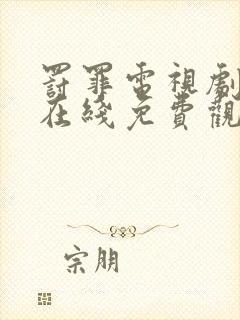 罸罪電視劇
在綫免費觀
宗朋